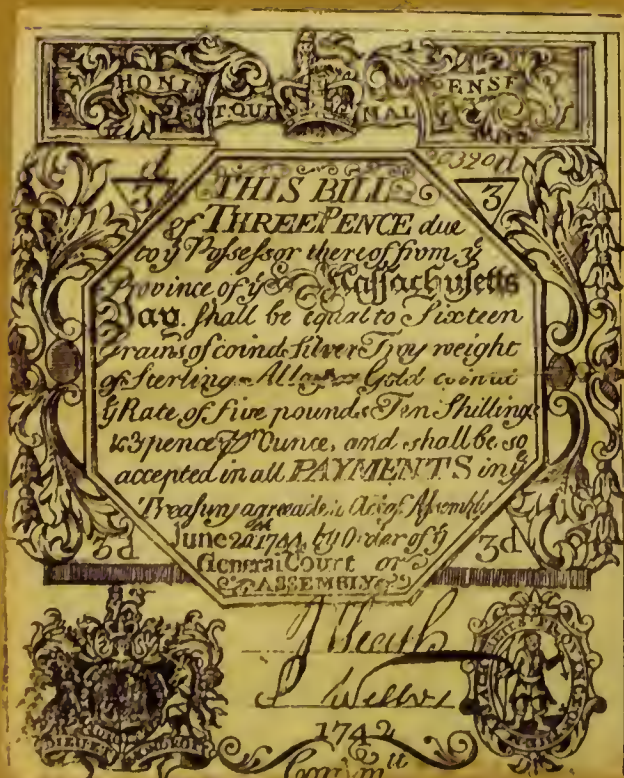 HONI SOIT QUI MAL Y PENSE
20320d
3 3
THIS BILL
of THREEPENCE due
to yͤ Possessor thereof from yͤ
Province of yͤ Massachusetts
Bay. shall be equal to Sixteen
Grains of coind Silver Troy weight
of Sterling Alloy or Gold coin at
yͤ Rate of five pounds Ten Shillings
& 3pence ⅌ Ounce, and shall be so
accepted in all PAYMENTS in yͤ
Treasury agreable to Act of Assembly
3d June 20 1744 by Order of yͤ 3d
General Court or
ASSEMBLY
DIEU ET MON DROIT
1742
Com̃tt